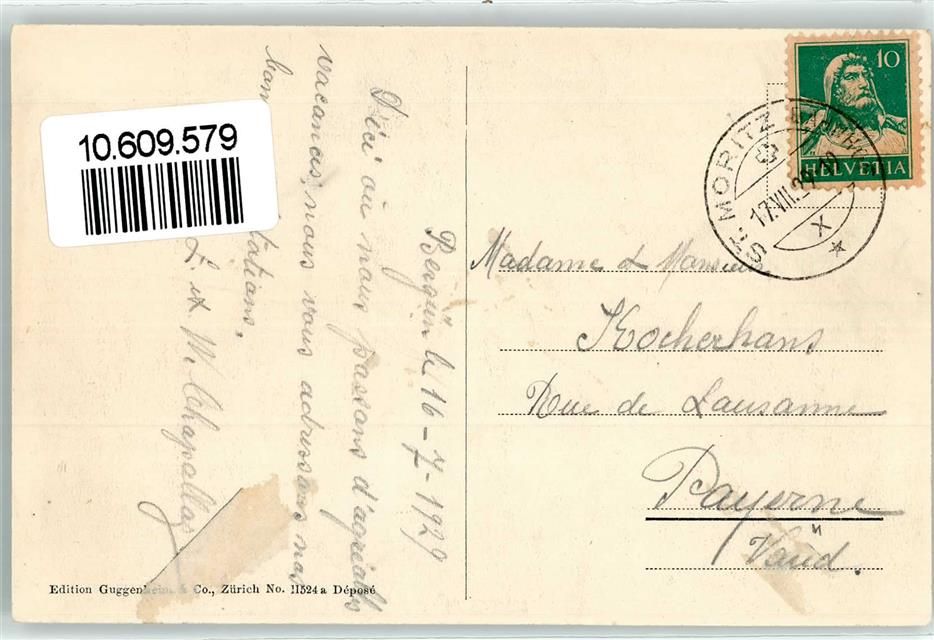 10.609.579
Bergün le 16-7-1929
D'ici où nous passons d'agréables
vacances, nous vous adressons nos
tations.
L. et W. Chapallaz
Edition Guggenheim & Co., Zürich No. 11524a Déposé
10
HELVETIA
ST. MORITZ
17.VII.29
X
Madame & Monsieur
Kocherhans
Rue de Lausanne
Payerne
Vaud.